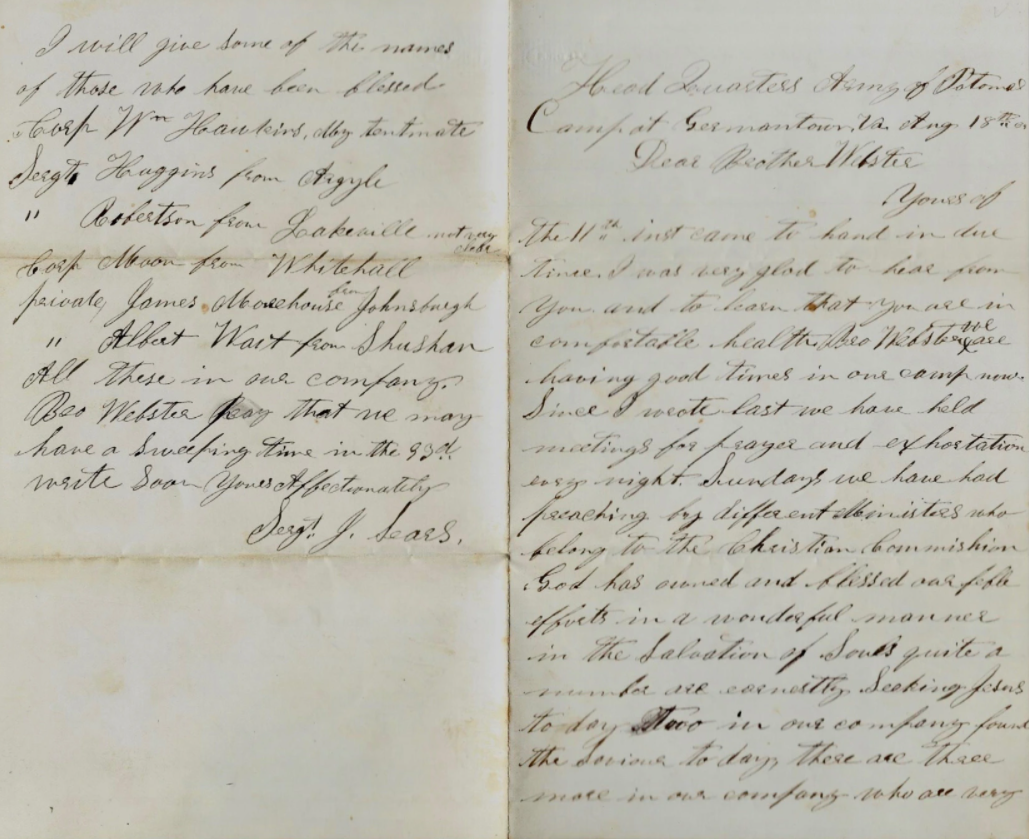 I will give some of the names
of those who have been blessed
Corp Wm Hawkins, My tentmate
Sergt Huggins from Argyle
" Robertson from Lakeville not very
clear
Corp Moon from Whitehall
private, James Morehouse from Johnsburgh
" Albert Wart from Shushan
All these in our company.
Bro Webster pray that we may
have a sweeping time in the 93d.
write soon Yours Affectionately
Sergt. J. Sears.
Head Quarters Army of Potomac
Camp at Germantown, Va. Aug 18th
Dear Brother Webster
Yours of
the 11th inst came to hand in due
time. I was very glad to hear from
you and to learn that you are in
comfortable health. Bro Webster we are
having good times in our camp now.
Since I wrote last we have held
meetings for prayer and exhortation
every night. Sundays we have had
preaching by different Ministers who
belong to the Christian Commishion
God has owned and blessed our feble
efforts in a wonderful manner
in the Salvation of Souls quite a
number are earnestly Seeking Jesus
to day Two in our company found
the Saviour to day, there are three
more in our company who are very